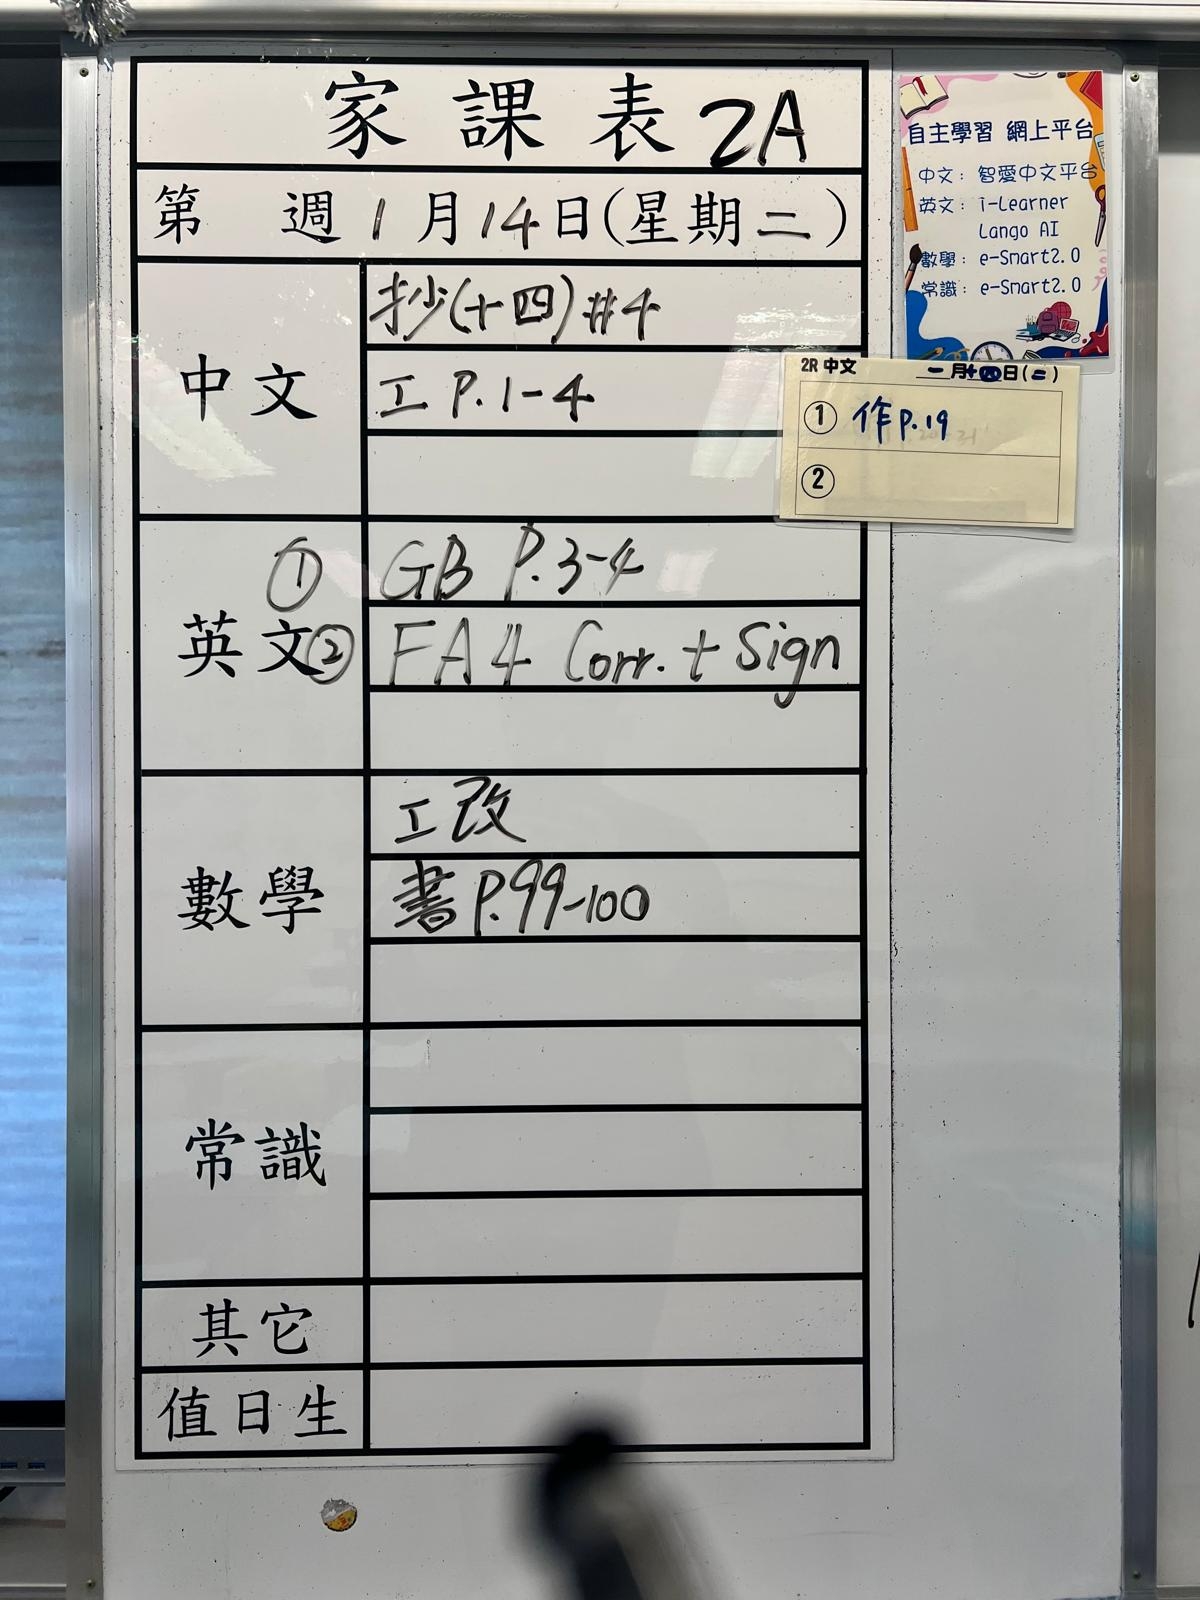 家課表 2A
第 週 1月14日(星期二)
中文
抄(十四)#4
工 P.1-4
英文
① GB P.3-4
② FA4 Corr. + Sign
數學
工改
書 P.99-100
常識
其它
值日生
自主學習 網上平台
中文：智愛中文平台
英文：i-Learner
Lango AI
數學：e-Smart2.0
常識：e-Smart2.0
2R 中文 一月十四日(二)
① 作 P.19
②